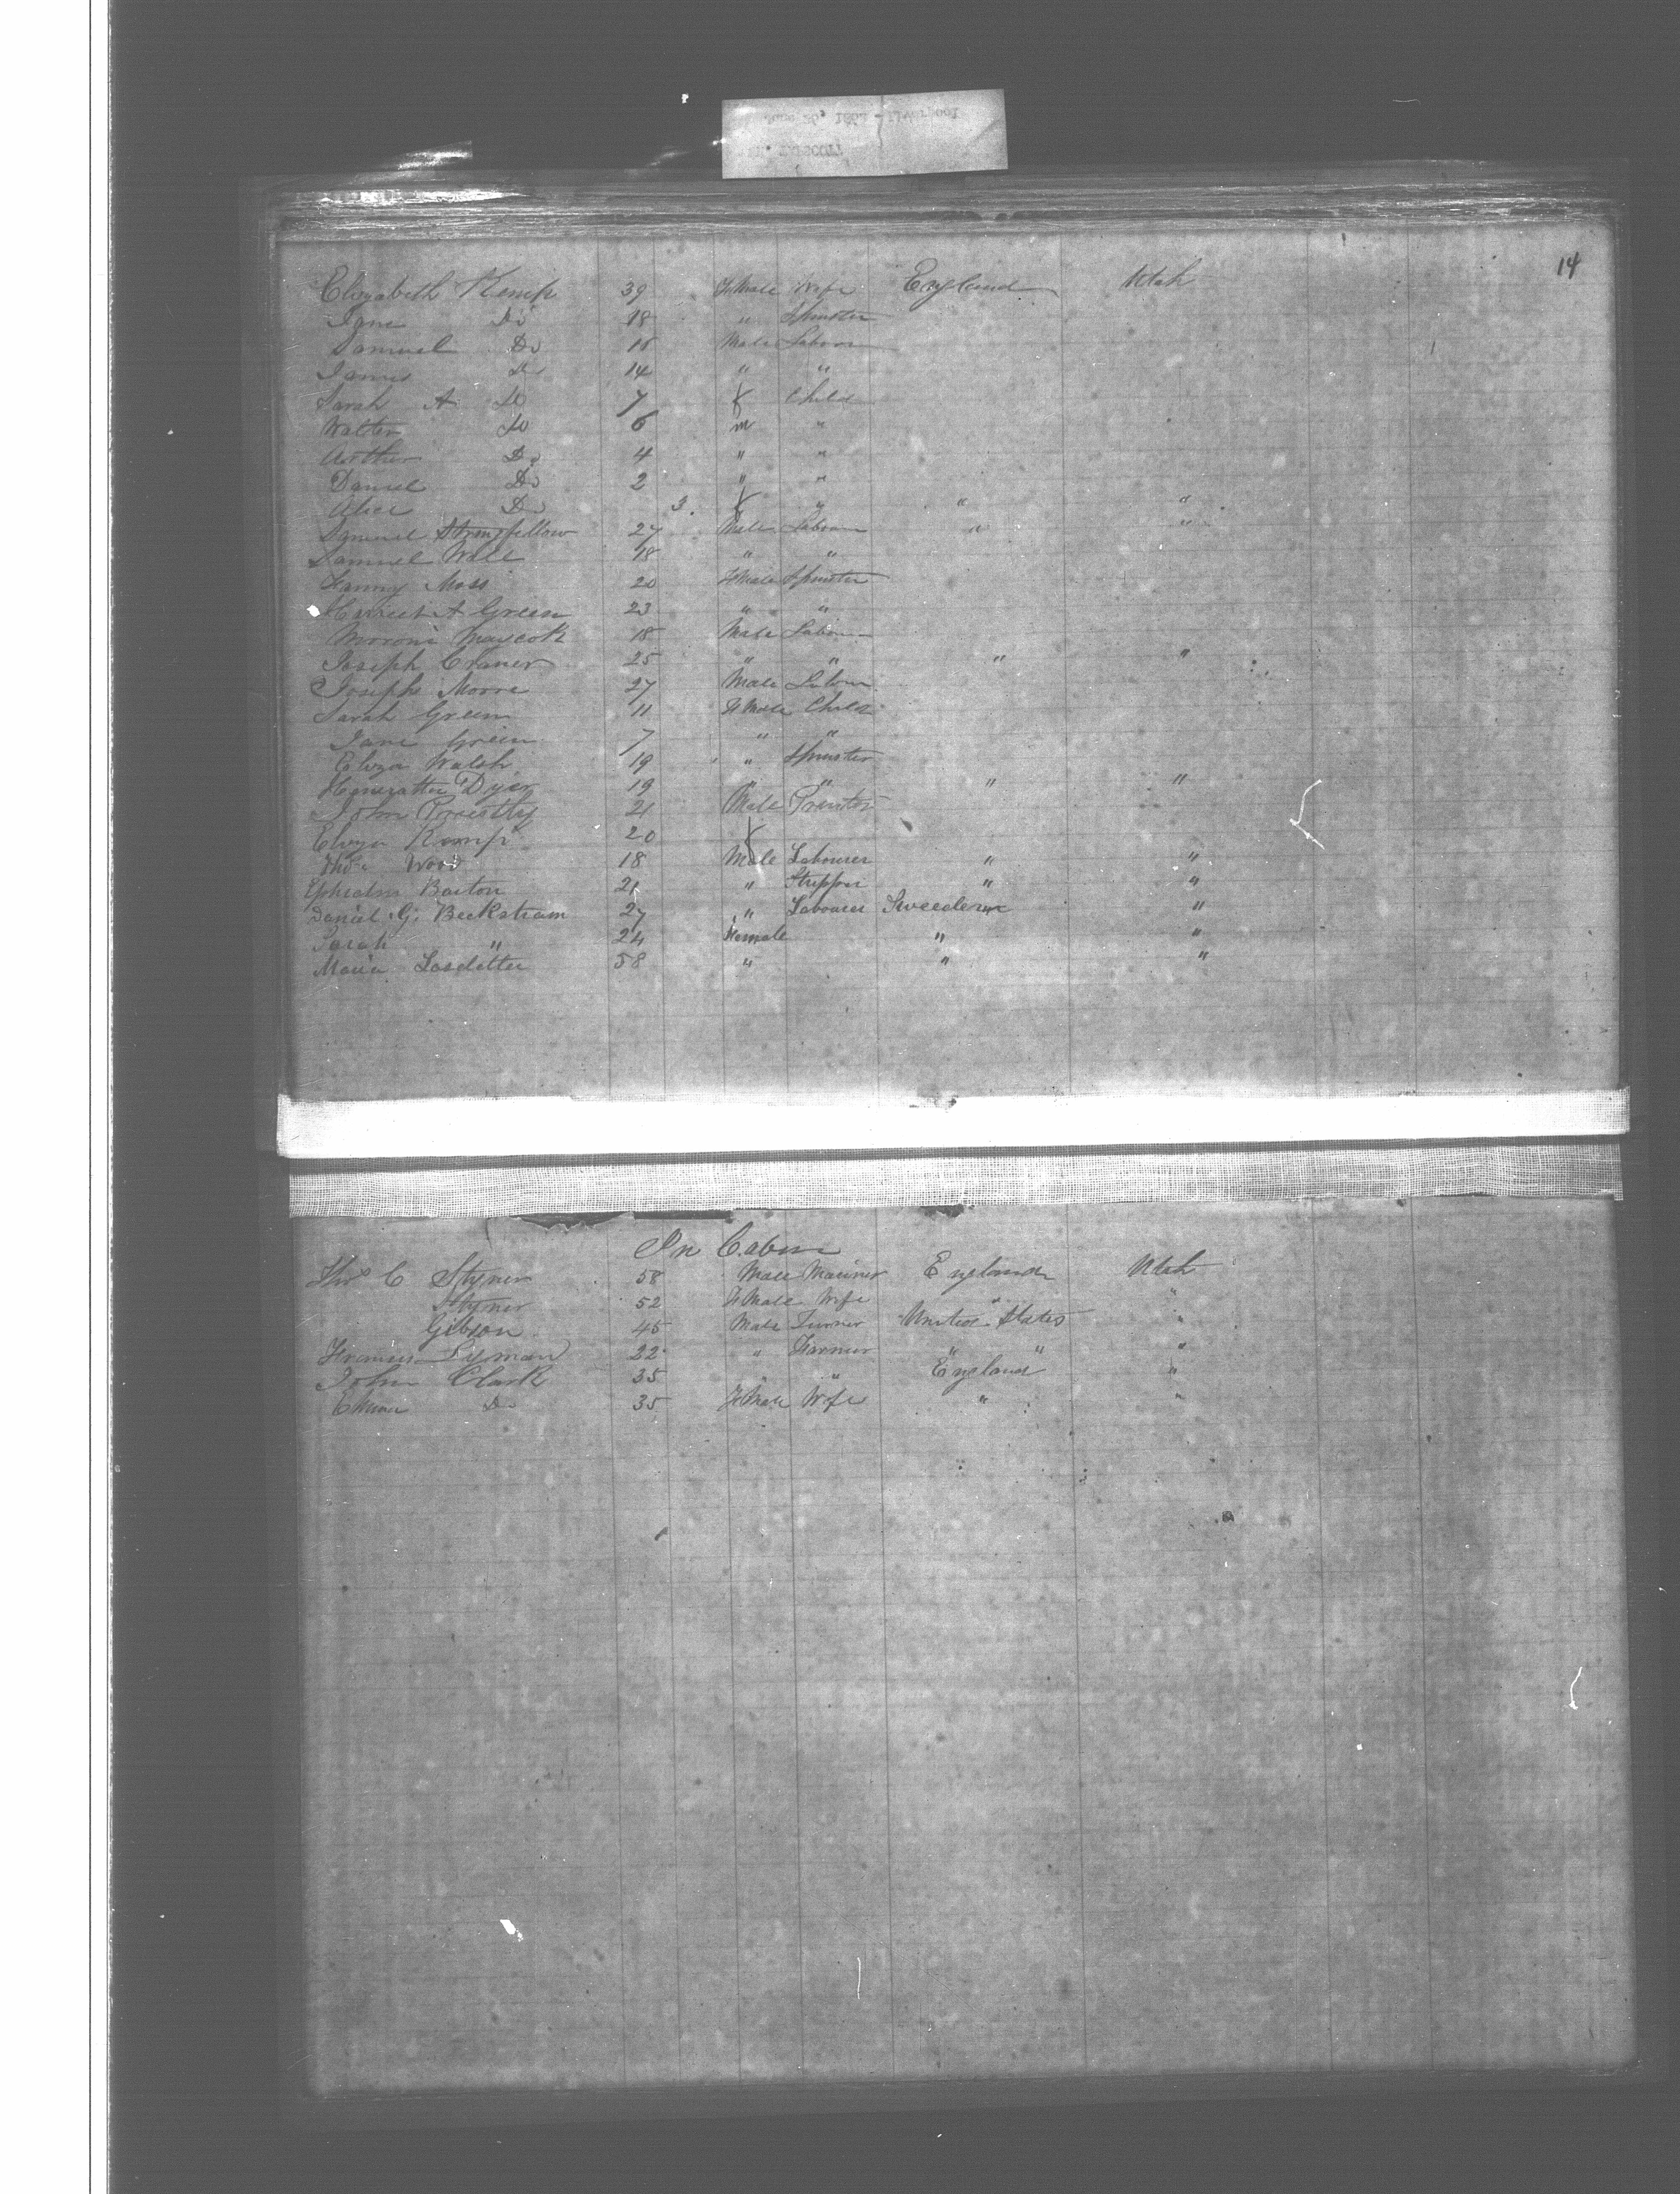 14
Elizabeth Kemp 39 Female Wife England Utah
Jane Do 18 " Spinster
Samuel Do 18 Male Labour
James Do 14 " "
Sarah A Do 7 f Child
Walter Do 6 m "
Arther Do 4 " "
Daniel Do 2 " "
Alice Do 3 f " " "
Samuel Stringfellow 27 Male Labour " "
Samuel Wall 18 " "
Fanny Moss 20 Female Spinster
Harriet A Green 23 " "
Moroni Maycock 18 Male Labour
Joseph Craner 25 " " " "
Joseph Morre 27 Male Labour
Sarah Green 11 Female Child
Jane Green 7 " "
Eliza Walsh 19 " Spinster
Dyer 19 " " " "
John Priestly 21 Male
Eliza Kemp 20 f
Thos Wood 18 Male Labourer " "
Barton 21 " " "
Daniel G. Beckstram 27 " Labourer Sweeden "
Sarah " 24 Female " "
Maria 58 " " "
In Cabin
Thos C Styner 58 Male Mariner England Utah
Styner 52 Female Wife " "
Gibson 45 Male Turner United States "
Francis Lyman 22 " Farmer " " "
John Clark 35 " " England "
Do 35 Female Wife " "